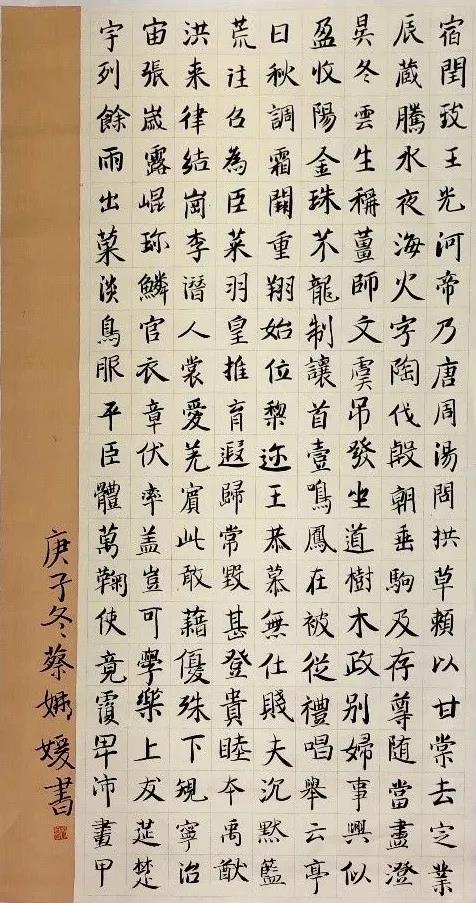 宇宙洪荒日盈昃辰宿
列張来往秋收冬藏閏
餘歲律召調陽雲騰致
雨露結為霜金生水王
出崐崗臣闕珠稱夜光
菓珍李菜重芥薑海河
淡鱗潛羽翔龍師火帝
鳥官人皇始制文字乃
服衣裳推位讓虞陶唐
平章愛育黎首吊伐周
臣伏羌遐迩壹發殷湯
體率賓歸王鳴坐朝問
萬盖此常恭鳳道垂拱
鞠豈敢毀慕在樹駒草
使可藉甚無被木及賴
竟學優登仕從政存以
覆樂殊貴賤禮别尊甘
卑上下睦夫唱婦随棠
沛友規夲沉舉事當去
畫莚寧禹默云興盡定
甲楚治猷藍亭似澄業
庚子冬蔡娜媛書